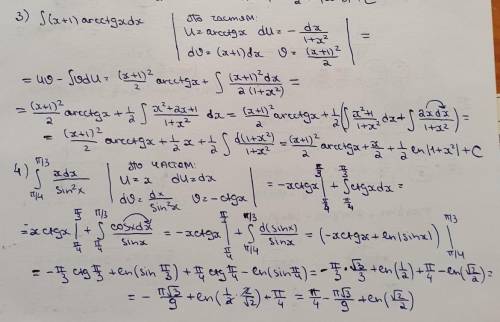 3) ∫(x+1)arcctgxdx | это частям: U=arcctgx dU=-dx/(1+x²) dϑ=(x+1)dx ϑ=(x+1)²/2 | =
=Uϑ-∫ϑdU=(x+1)²/2 arcctgx+∫(x+1)²dx/(2(1+x²))=
=(x+1)²/2 arcctgx+1/2∫(x²+2x+1)/(1+x²) dx=(x+1)²/2 arcctgx+1/2(∫(x²+1)/(1+x²) dx+∫2xdx/(1+x²))=
=(x+1)²/2 arcctgx+1/2 x+1/2∫d(1+x²)/(1+x²)=(x+1)²/2 arcctgx+x/2+1/2 ln|1+x²|+C
4) ∫_{π/4}^{π/3} xdx/sin²x | это частям: U=x dU=dx dϑ=dx/sin²x ϑ=-ctgx | =-xctgx|_{π/4}^{π/3}+∫_{π/4}^{π/3}ctgxdx=
=-xctgx|_{π/4}^{π/3}+∫_{π/4}^{π/3}cosxdx/sinx=-xctgx|_{π/4}^{π/3}+∫_{π/4}^{π/3}d(sinx)/sinx=(-xctgx+ln|sinx|)|_{π/4}^{π/3}
=-π/3 ctg π/3+ln(sin π/3)+π/4 ctg π/4-ln(sin π/4)=-π/3·√3/3+ln(1/2)+π/4-ln(√2/2)=
=-π√3/9+ln(1/2·2/√2)+π/4=π/4-π√3/9+ln(√2/2)